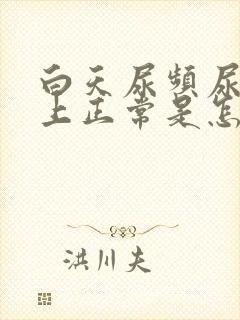 白天尿频尿
上正常是怎
洪川夫